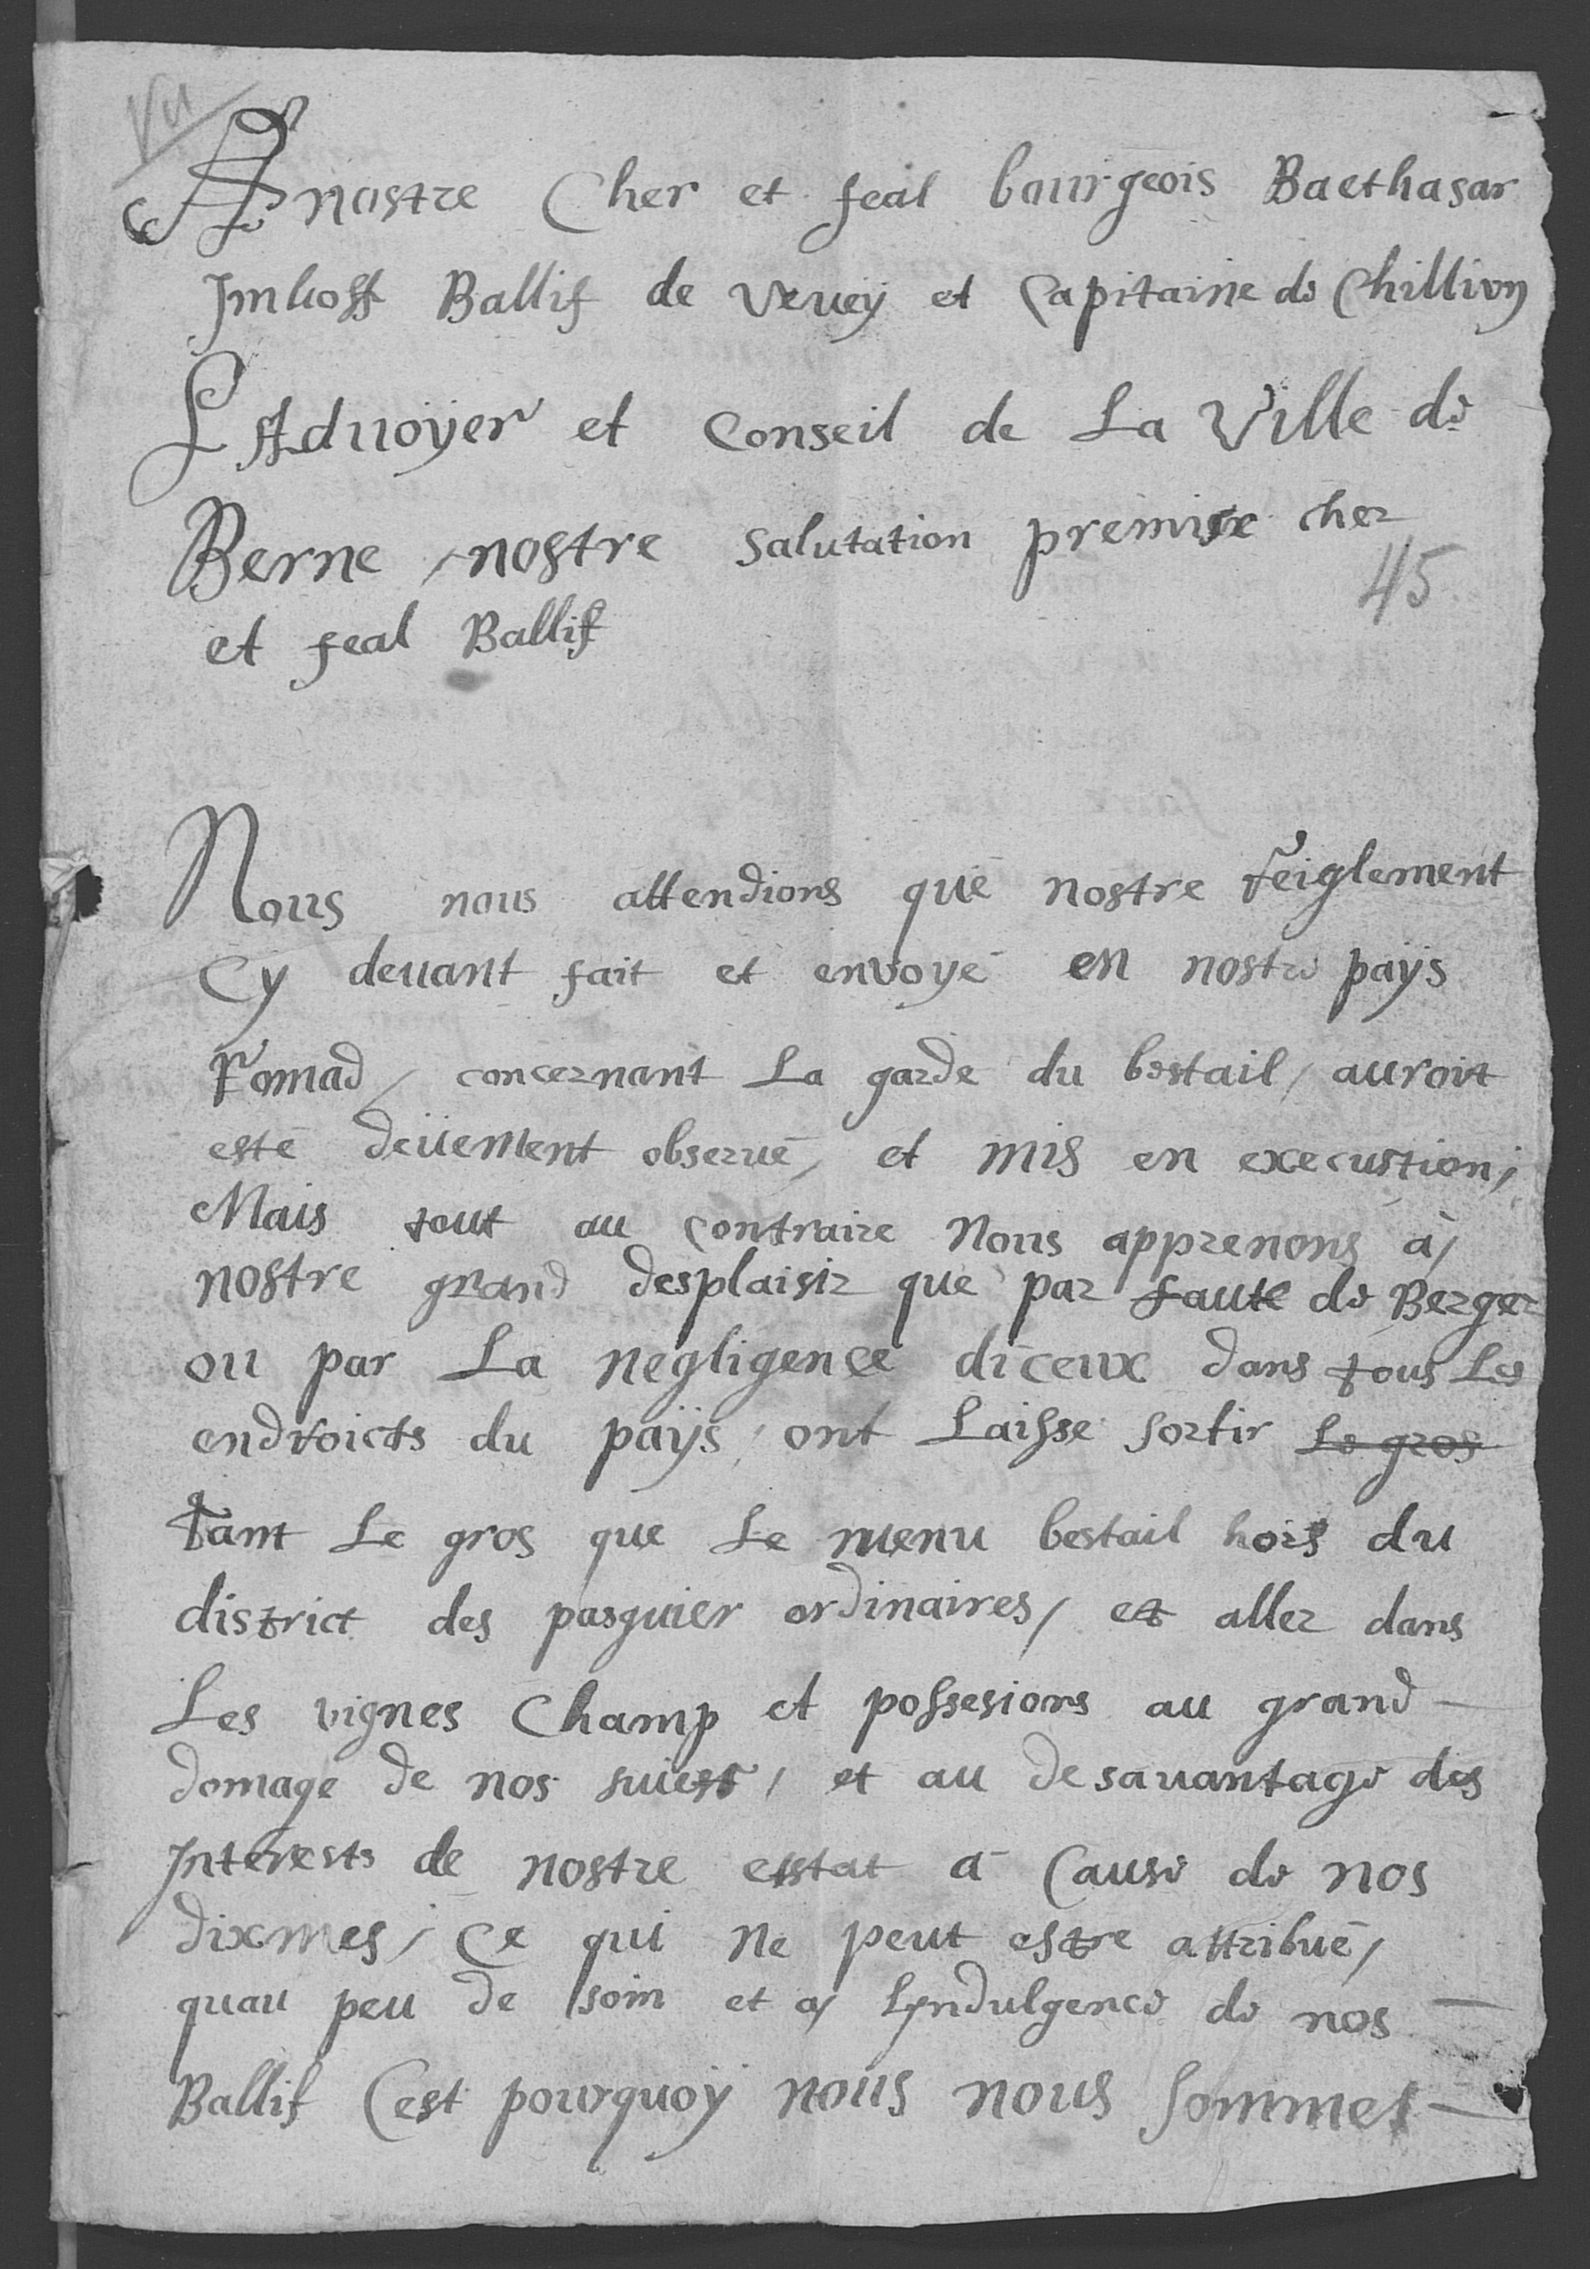 Vu
A nostre Cher et feal bourgeois Baethasar
Jmhoff Ballif de veuey et Capitaine de Chillion
L Aduoyer et Conseil de La Ville de
Berne, nostre salutation premise cher
45
et feal Ballif
Nous nous attendions que nostre reiglement
Cy deuant fait et envoyé en nostre paÿs
romad, concernant La garde du bestail, auroit
esté deüement obserué, et mis en execustion;
Mais tout au contraire Nous apprenons à
nostre grand desplaisir que par faute de Berger
ou par La negligence diceux dans tous Les
endroicts du paÿs, ont Laisse sortir Le gros
Tant Le gros que Le menu bestail hors du
district des pasquier ordinaires, et aller dans
Les vignes Champ et possesions au grand
domage de nos suiets, et au desauantage des
Interests de nostre esstat a Cause de nos
dixmes, Ce qui Ne peut estre attribué,
quau peu de soin et a Lyndulgence de nos
Ballif Cest pourquoÿ nous nous sommes